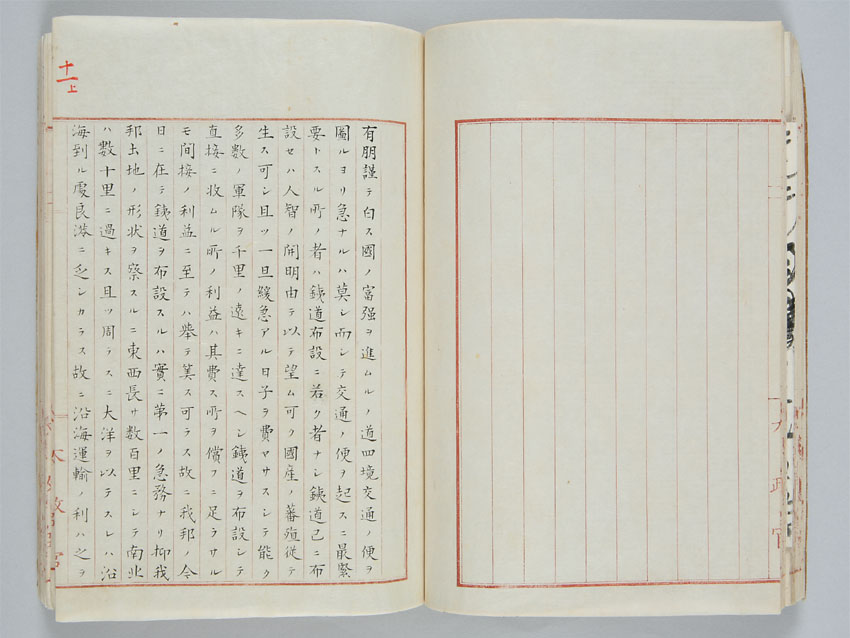 有朋謹テ白ス國ノ富强ヲ進ムルノ道四境交通ノ便ヲ
圖ルヨリ急ナルハ莫シ而シテ交通ノ便ヲ起スニ最緊
要トスル所ノ者ハ鉄道布設ニ若ク者ナシ鉄道已ニ布
設セハ人智ノ開明由テ以テ望ム可ク國産ノ蕃殖從テ
生ス可シ且ツ一旦緩急アル日子ヲ費ヤサスシテ能ク
多數ノ軍隊ヲ千里ノ遠キニ達スヘシ鉄道ヲ布設シテ
直接ニ收ムル所ノ利益ハ其費ス所ヲ償フニ足ラサル
モ間接ノ利益ニ至テハ擧テ筭ス可ラス故ニ我邦ノ今
日ニ在テ鉄道ヲ布設スルハ實ニ第一ノ急務ナリ抑我
邦土地ノ形状ヲ察スルニ東西長サ数百里ニシテ南北
ハ数十里ニ過キス且ツ周テスニ大洋ヲ以テスレハ沿
海到ル處良港ニ乏シカラス故ニ沿海運輸ノ利ハ之ヲ
十一上